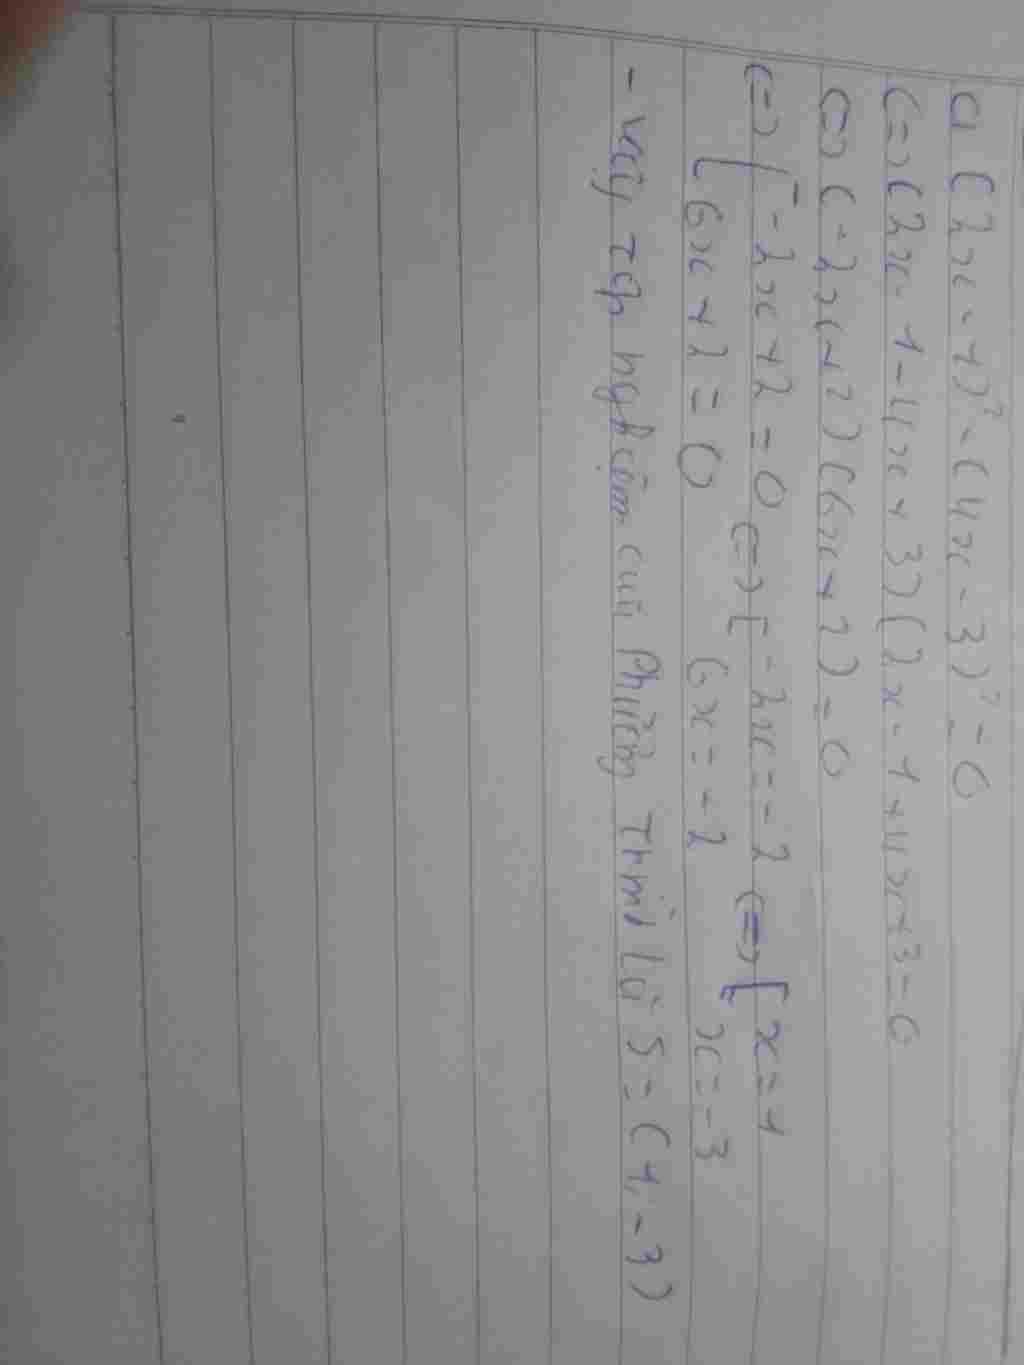 a (2x-1)² - (4x-3)² = 0
(=) (2x-1-4x+3)(2x-1+4x+3=0
(=) (-2x+2)(6x+2)=0
(=) [ -2x+2=0 (=) [ -2x=-2 (=) [ x=1
6x+2=0 6x=-2 x=-3
- vậy tập nghiệm của Phương Trình là S=(1,-3)